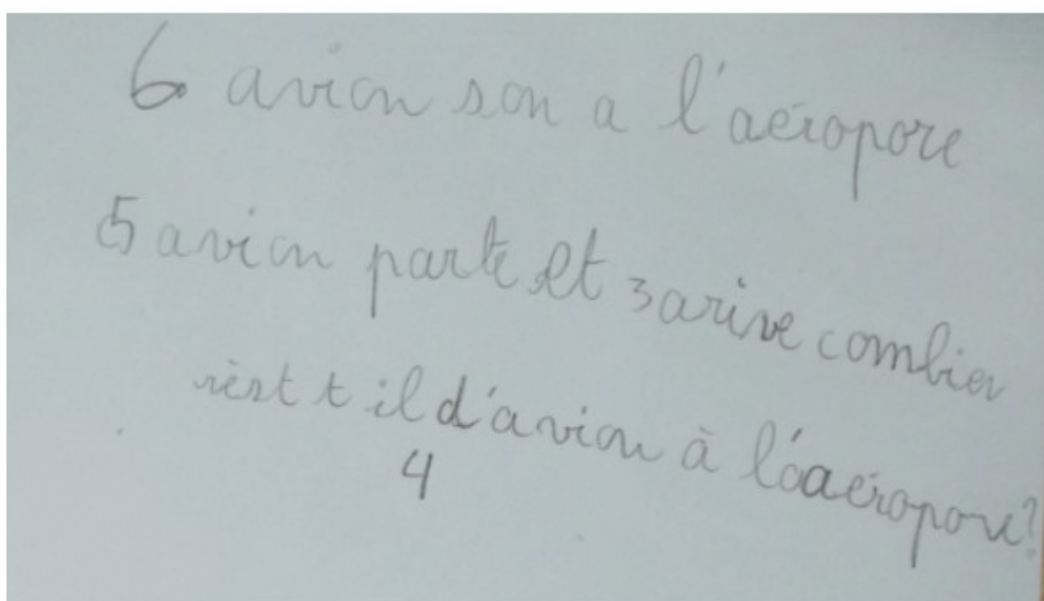 6 avion son a l'aéropore
5 avion parte et 3 arive combien
rèst t il d'avion à l'óaéropore?
4